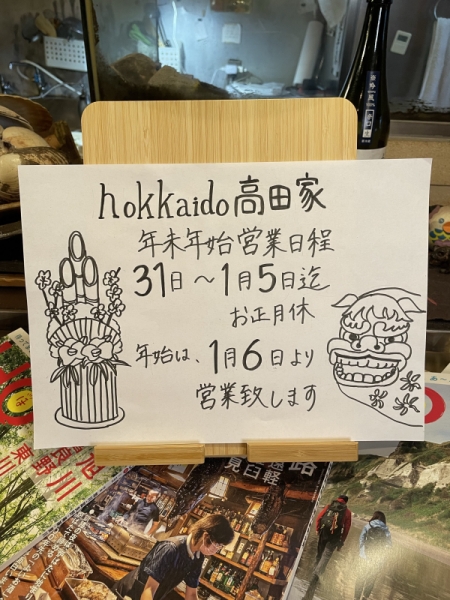 hokkaido高田家
年末年始営業日程
31日～1月5日迄
お正月休
年始は、1月6日より
営業致します
旭川
東川
遠軽